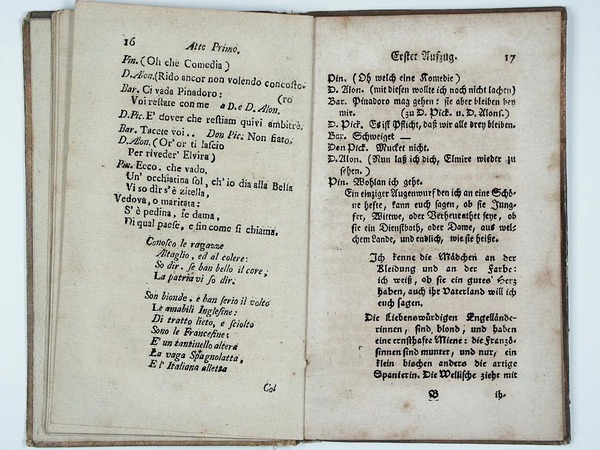 16
Atto Primo.
Pin. (Oh che Comedia)
D. Alon. (Rido ancor non volendo concosto-
Bar. Ci vada Pinadoro: (ro
Voi restate con me a D. e D. Alon.
D. Pic. E' dover che restiam quivi ambitrè.
Bar. Tacete voi.. Don Pic. Non fiato.
D. Alon. (Or' or ti lascio
Per riveder' Elvira)
Pin. Ecco, che vado.
Un' occhiatina sol, ch'io dia alla Bella
Vi so dir s'è zitella,
Vedova, o maritata:
S' è pedina, se dama,
Di qual paese, e fin come si chiama.
Conosco le ragazze
Altaglio, ed al colere:
So dir, se ban bello il core,
La patria vi so dir.
Son bionde, e han serio il volto
Le amabili Inglesine:
Di tratto lieto, e sciolto
Sono le Francesine:
E' un tantinello altera
La vaga Spagnoletta,
E l' Italiana alletta
Col
Erster Aufzug.
17
Pin. (Oh welch eine Komedie)
D. Alon. (mit diesen wollte ich noch nicht lachen)
Bar. Pinadoro mag gehen: sie aber bleiben bey
mir. (zu D. Pick. u. D. Alons.)
D. Pick. Es ist Pflicht, daß wir alle drey bleiben.
Bar. Schweiget —
Don Pick. Mucket nicht.
D. Alon. (Nun laß ich dich, Elmire wieder zu
sehen.)
Pin. Wohlan ich gehe.
Ein einziger Augenwurf den ich an eine Schö-
ne hefte, kann euch sagen, ob sie Jung-
fer, Wittwe, oder Verheurathet seye, ob
sie ein Dienstboth, oder Dame, aus wel-
chem Lande, und endlich, wie sie heiße.
Ich kenne die Mädchen an der
Kleidung und an der Farbe:
ich weiß, ob sie ein gutes Herz
haben, auch ihr Vaterland will ich
euch sagen.
Die Liebenswürdigen Engellände-
rinnen, sind, blond, und haben
eine ernsthafte Miene: die Franzö-
sinnen sind munter, und nur, ein
klein bischen anders die artige
Spanierin. Die Wellische ziehe mit
B
ih-